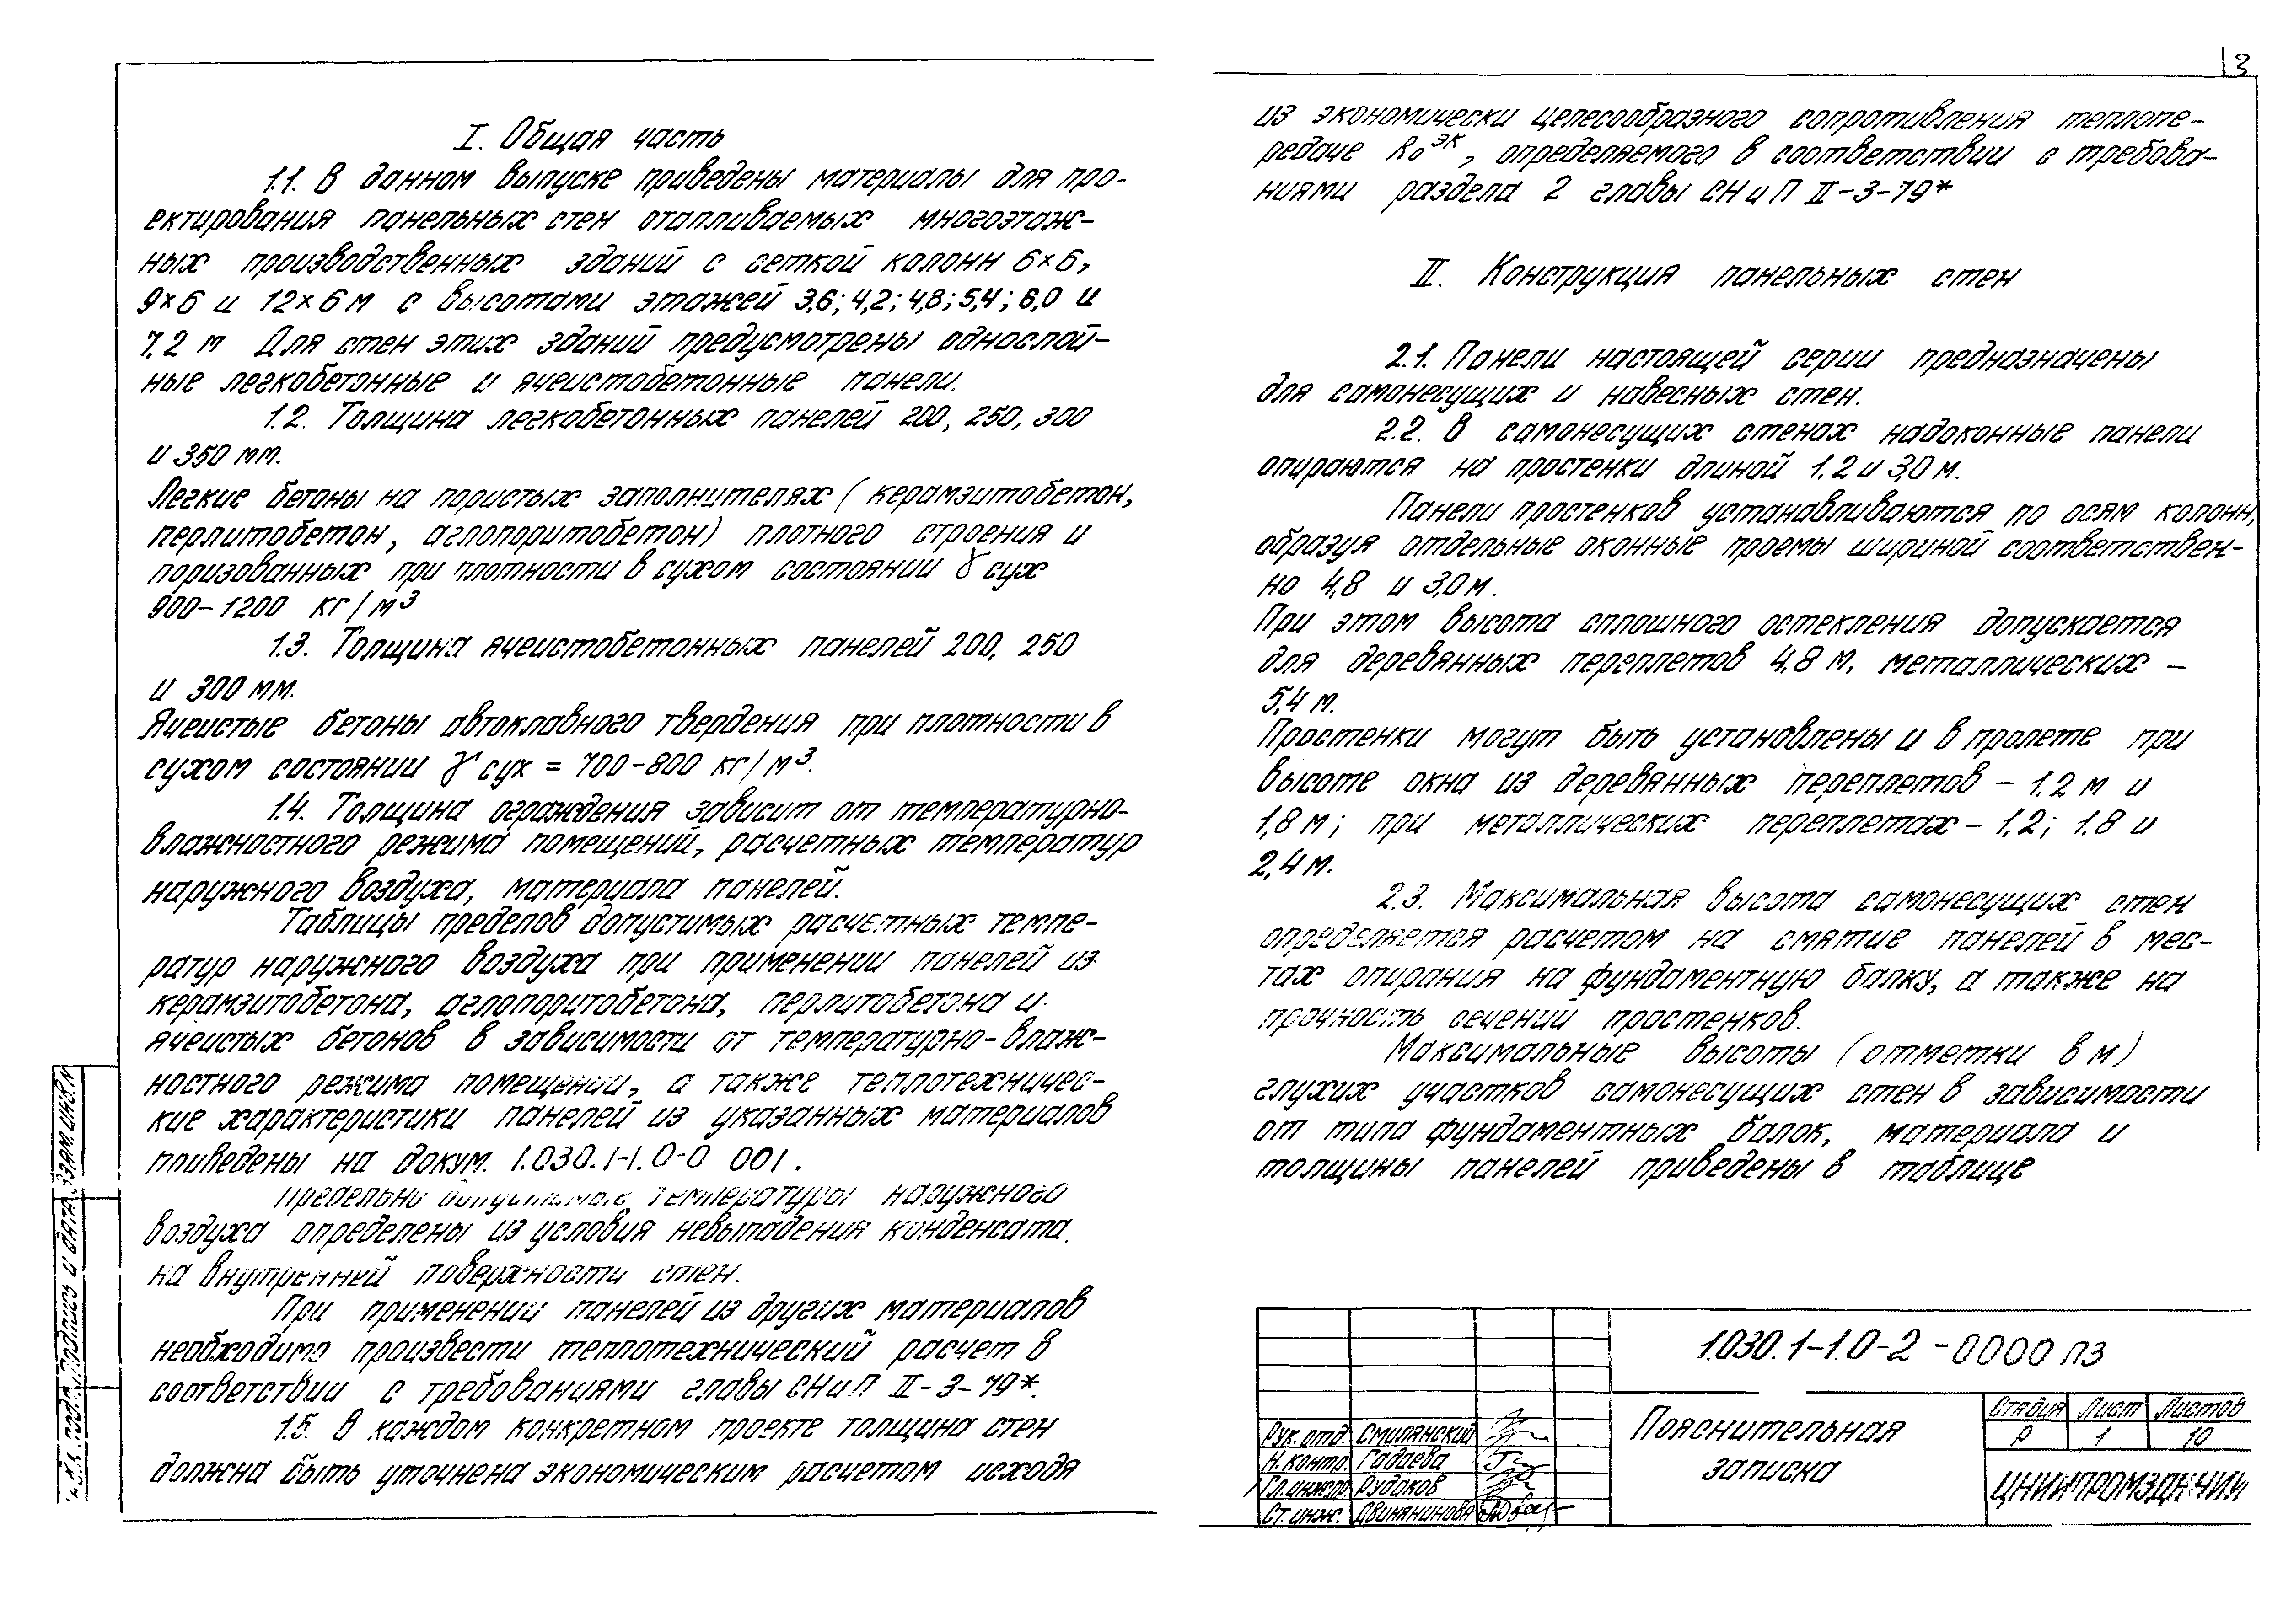 I. Общая часть
1.1. В данном выпуске приведены материалы для про-
ектирования панельных стен отапливаемых многоэтаж-
ных производственных зданий с сеткой колонн 6×6,
9×6 и 12×6 м с высотами этажей 3,6; 4,2; 4,8; 5,4; 6,0 и
7,2 м Для стен этих зданий предусмотрены однослой-
ные легкобетонные и ячеистобетонные панели.
1.2. Толщина легкобетонных панелей 200, 250, 300
и 350 мм.
Легкие бетоны на пористых заполнителях (керамзитобетон,
перлитобетон, аглопоритобетон) плотного строения и
поризованных при плотности в сухом состоянии γ сух
900-1200 кг/м³
1.3. Толщина ячеистобетонных панелей 200, 250
и 300 мм.
Ячеистые бетоны автоклавного твердения при плотности в
сухом состоянии γ сух = 700-800 кг/м³.
1.4. Толщина ограждения зависит от температурно-
влажностного режима помещений, расчетных температур
наружного воздуха, материала панелей.
Таблицы пределов допустимых расчетных темпе-
ратур наружного воздуха при применении панелей из
керамзитобетона, аглопоритобетона, перлитобетона и
ячеистых бетонов в зависимости от температурно-влаж-
ностного режима помещений, а также теплотехничес-
кие характеристики панелей из указанных материалов
приведены на докум. 1.030.1-1.0-0 001.
Предельно допустимые температуры наружного
воздуха определены из условия невыпадения конденсата
на внутренней поверхности стен.
При применении панелей из других материалов
необходимо произвести теплотехнический расчет в
соответствии с требованиями главы СНиП II-3-79*.
1.5. В каждом конкретном проекте толщина стен
должна быть уточнена экономическим расчетом исходя
подп. Подпись и дата Взам.инв.N
13
из экономически целесообразного сопротивления теплопе-
редаче Rо эк, определяемого в соответствии с требова-
ниями раздела 2 главы СНиП II-3-79*
II. Конструкция панельных стен
2.1. Панели настоящей серии предназначены
для самонесущих и навесных стен.
2.2. В самонесущих стенах надоконные панели
опираются на простенки длиной 1.2 и 3,0 м.
Панели простенков устанавливаются по осям колонн,
образуя отдельные оконные проемы шириной соответствен-
но 4,8 и 3,0 м.
При этом высота сплошного остекления допускается
для деревянных переплетов 4.8 м, металлических –
5,4 м.
Простенки могут быть установлены и в пролете при
высоте окна из деревянных переплетов – 1.2 м и
1,8 м; при металлических переплетах – 1,2; 1.8 и
2,4 м.
2.3. Максимальная высота самонесущих стен
определяется расчетом на смятие панелей в мес-
тах опирания на фундаментную балку, а также на
прочность сечений простенков.
Максимальные высоты (отметки в м)
глухих участков самонесущих стен в зависимости
от типа фундаментных балок, материала и
толщины панелей приведены в таблице
1.030.1-1.0-2-0000 ПЗ
Рук. отд. Смилянский
Н. контр. Гадаева
Гл. инж.пр. Рудаков
Ст. инж. Двинянинова
Пояснительная
записка
Стадия Лист Листов
Р 1 10
ЦНИИПРОМЗДАНИЙ